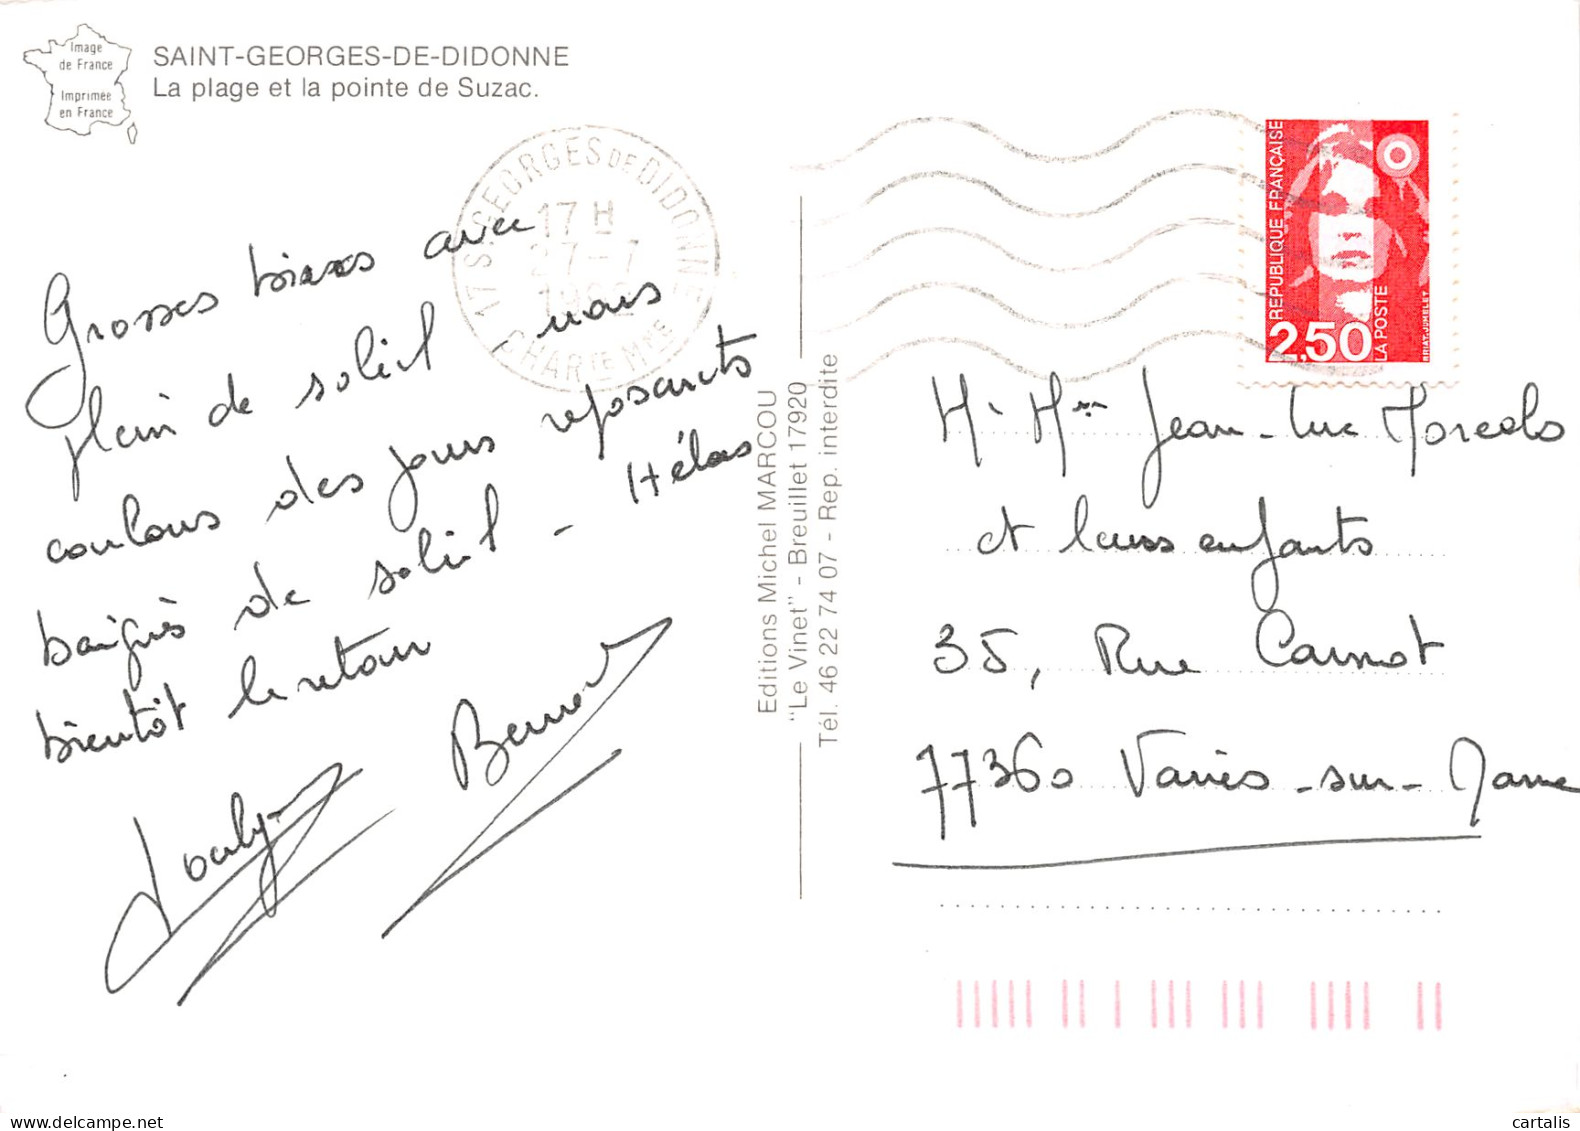 Image
de France
Imprimée
en France
SAINT-GEORGES-DE-DIDONNE
La plage et la pointe de Suzac.
17 ST GEORGES DE DIDONNE
17 H
27-7
CHARTE MME
Grosses bises avec
plein de soleil nous
coulons des jours reposants
baignés de soleil - Hélas
bientôt le retour
Editions Michel MARCOU
"Le Vinet" - Breuillet 17920
Tél. 46 22 74 07 - Rep. interdite
REPUBLIQUE FRANÇAISE
2,50
LA POSTE
BRIAT-JUMELET
Mr Mme Jean-Luc
et leurs enfants
35, Rue Carnot
77360 Vaires-sur-Marne
cartalis